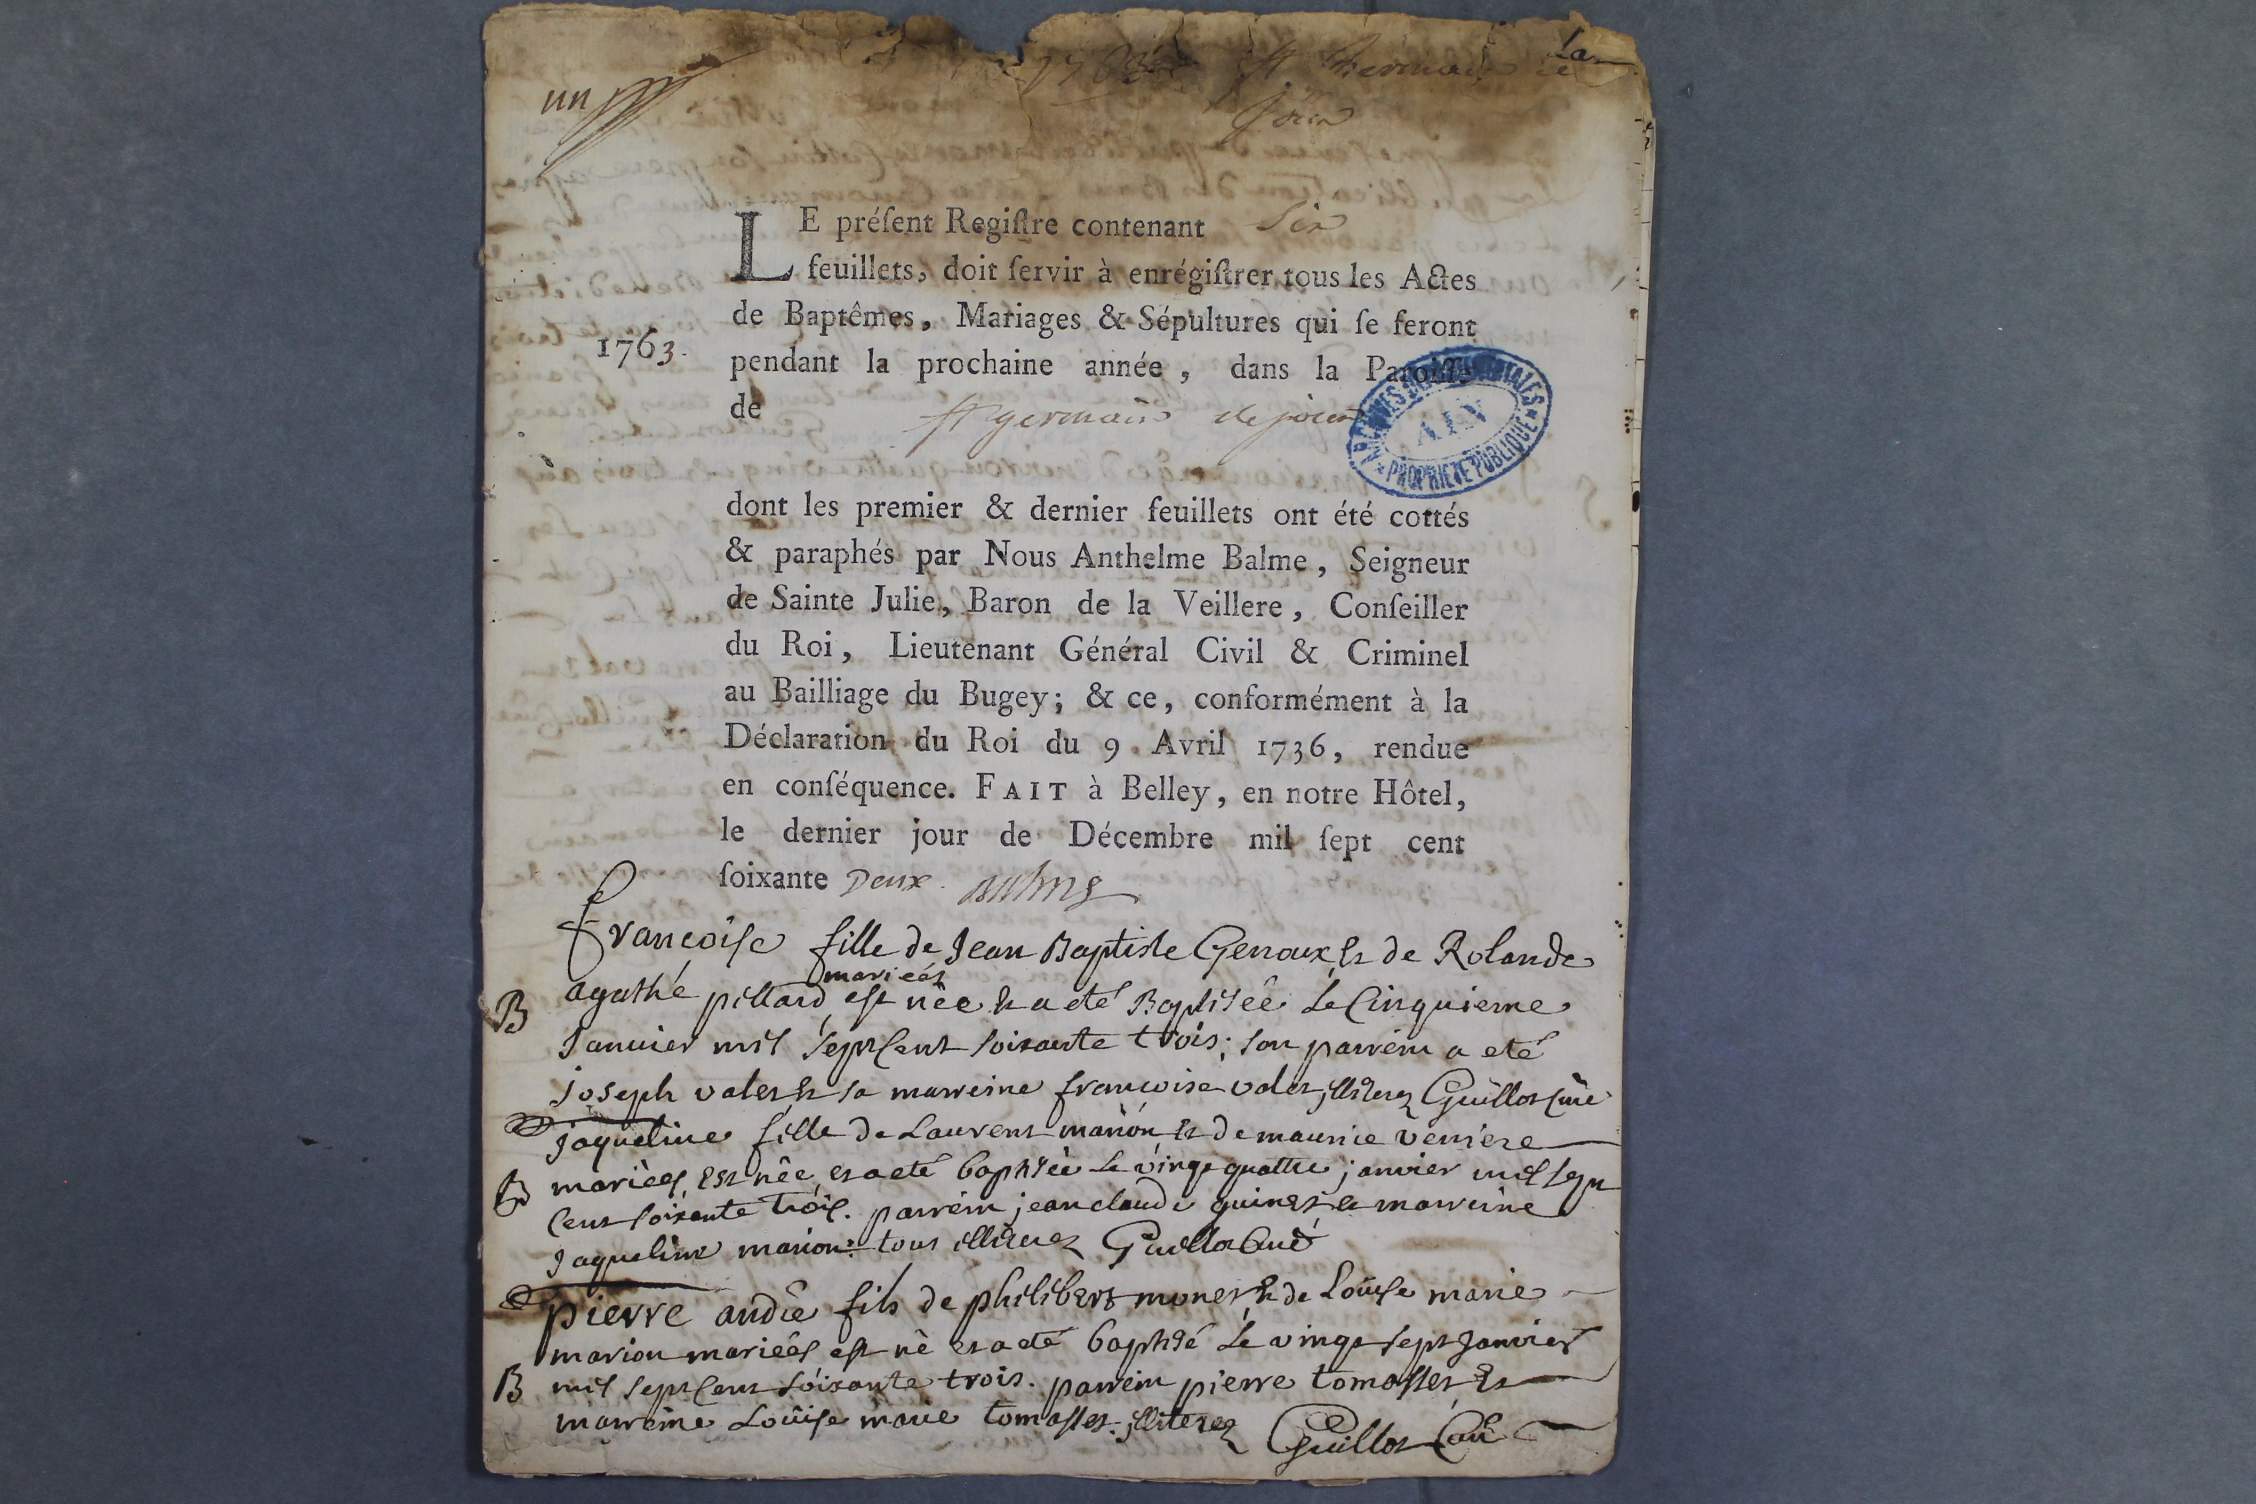 un
1763 St Germain de
La
Joux
LE préſent Regiſtre contenant Six
feuillets, doit ſervir à enrégiſtrer tous les Actes
de Baptêmes, Mariages & Sépultures qui ſe feront
1763.
pendant la prochaine année, dans la Paroiſſe
de St germain de joux
ARCHIVES DÉPARTEMENTALES
AIN
PROPRIÉTÉ PUBLIQUE
dont les premier & dernier feuillets ont été cottés
& paraphés par Nous Anthelme Balme, Seigneur
de Sainte Julie, Baron de la Veillere, Conſeiller
du Roi, Lieutenant Général Civil & Criminel
au Bailliage du Bugey; & ce, conformément à la
Déclaration du Roi du 9 Avril 1736, rendue
en conſéquence. FAIT à Belley, en notre Hôtel,
le dernier jour de Décembre mil ſept cent
ſoixante Deux. Balme
françoise fille de Jean Baptiste Genoux et de Rolande
mariées
B agathe pillard est née et a eté Baptisée Le Cinquieme
Janvier mil sept Cent soixante trois; son parrein a eté
joseph valet et sa marreine francoise valet, illiterez Guillot Curé
jaqueline fille de Laurent marion et de maurice verriere
B mariées, est née et a eté baptisée Le vingt quattre janvier mil sept
Cent soixante trois. parrein jean claude guinet et marreine
Jaqueline marion: tous illiterez Guillot Curé
pierre andré fils de philibert monet et de Loüise marie
marion mariées est né et a eté baptisé Le vingt sept Janvier
B mil sept Cent soixante trois. parrein pierre tomasset Et
marreine Loüise marie tomasset. illiterez Guillot Curé